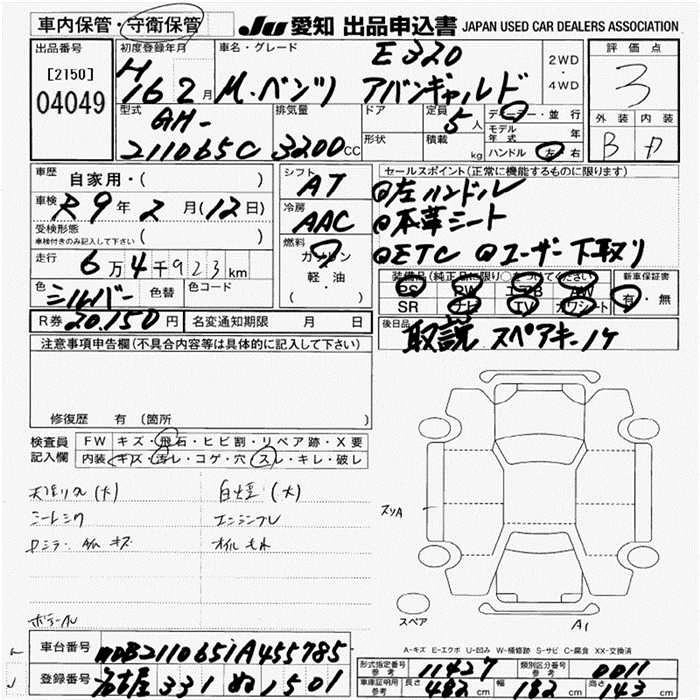 車内保管・守衛保管
JU 愛知 出品申込書 JAPAN USED CAR DEALERS ASSOCIATION
出品番号
[2150]
04049
初度登録年月
H 16 2月
車名・グレード
E320
M・ベンツ アバンギャルド
2WD
・
4WD
評価点
3
外装 内装
B D
型式
GH-
211065C
排気量
3200CC
ドア
形状
定員
5人
積載
kg
ディーラー・並行
モデル年式 年
ハンドル 左 右
車歴
自家用・( )
車検
R9年2月(12日)
受検形態
車検付きのみ記入して下さい ( )
走行
6万4千923km
色 シルバー 色替 色コード
R券 20,150円 名変通知期限 月 日
シフト
AT
冷房
AAC
燃料
ガソリン
軽・油
( )
セールスポイント(正常に機能するものに限ります)
@左ハンドル
@本革シート
@ETC @ユーザー下取り
装備品(純正品に限り○をつけてください)
PS PW エアB AW
SR ナビ TV カワシート
新車保証書
有・無
後日品
取説 スペアキー1ケ
注意事項申告欄(不具合内容等は具体的に記入して下さい)
修復歴 有 (箇所 )
検査員記入欄
FW キズ・飛石・ヒビ割・リペア跡・X要
内装 キズ・汚レ・コゲ・穴・スレ・キレ・破レ
白煙 (大)
オイルもれ
スリA
スペア
A1
A-キズ E-エクボ U-凹み W-補修跡 S-サビ C-腐食 XX-交換済
車台番号 WDB2110651A455785
登録番号 名古屋 331 ぬ 1501
形式指定番号 参考 11427 類別区分番号 参考 0011
車庫証明用 参考 長さ 482cm 幅 182cm 高さ 143cm